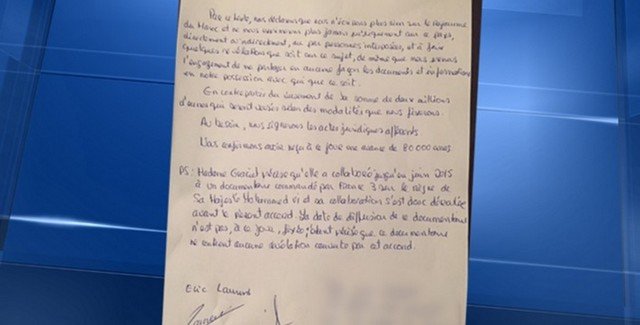 Par ce texte, nous déclarons que nous n'écrirons plus rien sur le Royaume
du Maroc et ne nous exprimerons plus jamais publiquement sur ce pays,
directement ou indirectement, ou par personnes interposées, et à faire
quelques révélations que soit sur ce sujet, de même que nous prenons
l'engagement de ne partager en aucune façon les documents et informations
en notre possession avec qui que ce soit.
En contrepartie du versement de la somme de deux millions
d'euros qui seront versés selon des modalités que nous fixerons.
Au besoin, nous signerons les actes juridiques afférents
confirmons avoir reçu à ce jour une avance de 80 000 euros.
PS: Madame Graciet précise qu'elle a collaboré jusqu'en juin 2015
à un documentaire commandé par France 3 sur le règne de
Sa Majesté Mohammed VI et sa collaboration s'est donc déroulée
avant le présent accord. La date de diffusion de ce documentaire
n'est pas, à ce jour, fixée, étant précisé que ce documentaire
ne contient aucune révélation couverte par cet accord.
Eric Laurent